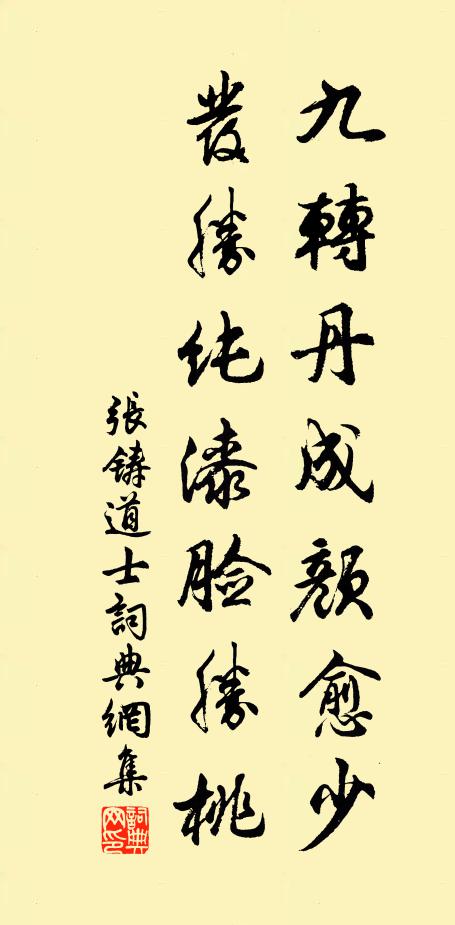 九轉丹成顏愈少
發勝純漆臉勝桃
張鑄道士詞典網集
詞典网印